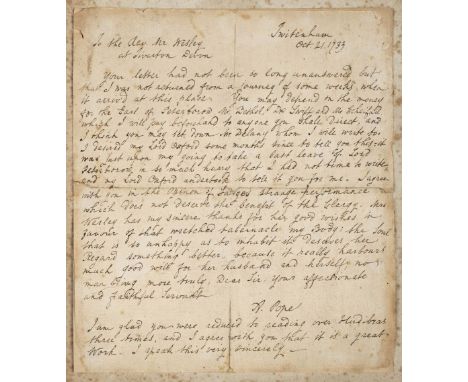 Twitenham
Oct 21. 1733
To the Rev. Mr Wesley
at Tiverton Devon
Your letter had not been so long unanswered but
that I was not returned from a journey of some weeks when
it arrived at this place. You may depend on the money
for the Earl of Peterborow Mr Bethel, Dr Swift and Mr
which I will pay beforehand to anyone you shall Direct, and
I think you may set down Mr Delany whom I will write to.
I desired my Lord Oxford some months since to tell you this. it
was just upon my going to take a last leave of Lord
Peterborow, in so much hurry that I had not time to write
and my Lord Oxford undertook to tell it you for me. I agree
with you in opinion of Savages strange performance
which does not deserve the benefit of the Clergy. Mrs
Wesley has my sincere thanks for her good wishes in
favour of that wretched tabernacle my Body: the Soul
that is so unhappy as to inhabit it Deserves her
Regard something better, because it really harbours
much good will for her husband and herself no
man being more truly, Dear Sir, your affectionate
and faithful Servant
A. Pope
I am glad you were reduced to reading over Hudibras
three times, and I agree with you that it is a great
Work. I speak this very sincerely